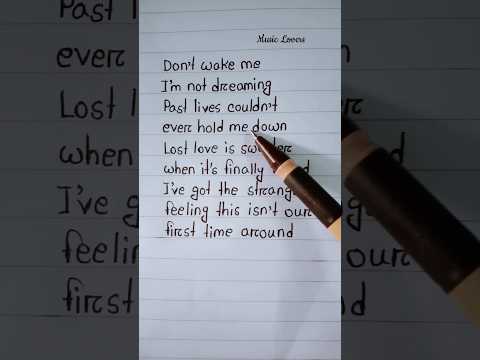 Music Lovers
Don't wake me
I'm not dreaming
Past lives couldn't
ever hold me down
Lost love is
when it's finally
I've got the
feeling this isn't our
first time around